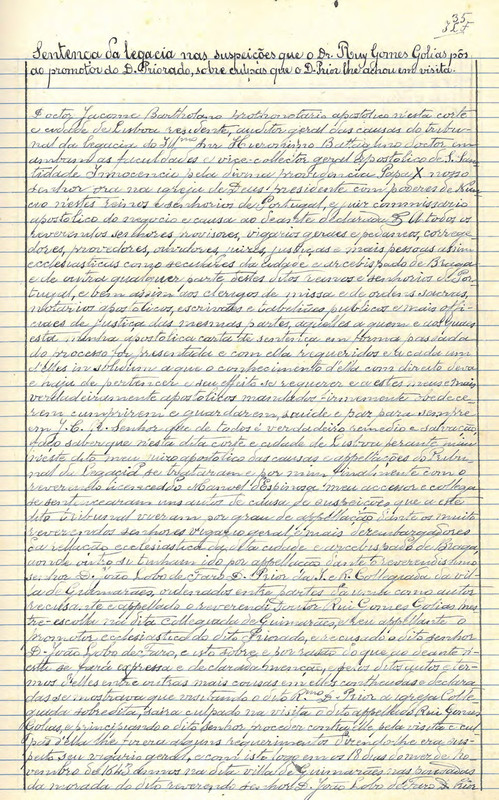 35
Sentença da legacia nas suspeições que o Dr. Ruy Gomes Golias pôs
ao promotor do D. Priorado, sobre culpas que o D. Prior lhe achou em visita.
Doctor Jacome Bartholano protonotario apostolico n'esta corte
e cidade de Lisboa residente, auditor geral das causas do tribu-
nal da legacia do Ill.mo Snr. Hieronhimo Battaglino doctor in
ambarum as faculdades e vice-collector geral apostolico de S. San-
tidade Innocencio pela divina providencia Papa X nosso
senhor ora na igreja de Deus presidente com poderes de Nun-
cio nestes reinos e senhorios de Portugal, e juiz commissario
apostolico do negocio e causa ao deante declarado &. A todos os
reverendos senhores, provisores, vigarios geraes e pedaneos, correge-
dores, provedores, ouvidores, juizes, justiças e mais pessoas assim
ecclesiasticas como seculares da cidade e arcebispado de Braga
e de outra qualquer parte destes ditos reinos e senhorios de Por-
tugal, e bem assim aos clerigos de missa e de ordens sacras,
notarios apostolicos, escrivães e tabelliães publicos e mais offi-
ciaes de justiça das mesmas partes, aquelles a quem e aos quaes
esta minha apostolica carta de sentença em forma passada
do processo for presentada e com ella requeridos e a cada um
d'elles in solidum a que o conhecimento d'ella com direito deva
e haja de pertencer e seu effeito se requerer e a estes meus e mais
verdadeiramente apostolicos mandados firmemente obedece-
rem cumprirem e guardarem, saude e paz para sempre
em J. C. N. Senhor que de todos é verdadeiro remedio e salvação.
Faço saber que n'esta dita corte e cidade de Lisboa perante mim
n'este dito meu juizo apostolico das causas e appellações do Tribu-
nal da Legacia se trataram e por mim finalmente com o
reverendo licenceado Manuel Espinosa meu accessor e collega
se sentencearam uns autos de causa de suspeições que a este
dito tribunal vieram por grau de appellação d'ante os muito
reverendos senhores vigario geral e mais desembargadores
da relação ecclesiastica da dita cidade e arcebispado de Braga,
aonde outro se tinham ido por appellação dante o reverendissimo
senhor D. João Lobo de Faro D. Prior da I. e R. Collegiada da vil-
la de Guimarães, ordenados entre partes da uma como autor
recusante e appellado o reverendo Doutor Rui Gomes Golias mes-
tre-escola na dita collegiada de Guimarães, e reu appellante o
promotor ecclesiastico do dito Priorado, e recusado o dito senhor
D. João Lobo de Faro, e isto sobre e por razão do que ao deante n'
esta se fará expressa e declarada menção, e pelos ditos autos e ter-
mos d'elles entre outras mais cousas em elles contheudas e declara-
das se mostrava que visitando o dito R.mo D. Prior a igreja Colle-
giada sobredita, saira culpado na visita o dito appellado Rui Gomes
Golias, e principiando o dito senhor proceder contra elle pela visita e cul-
pas d'ella lhe fizera alguns requerimentos dizendo lhe era sus-
peito seu vigario geral, e como isto logo em os 18 dias do mez de No-
vembro de 1643 annos na dita villa de Guimarães nas pousadas
da morada do dito reverendo senhor D. João Lobo de Faro D. Prior